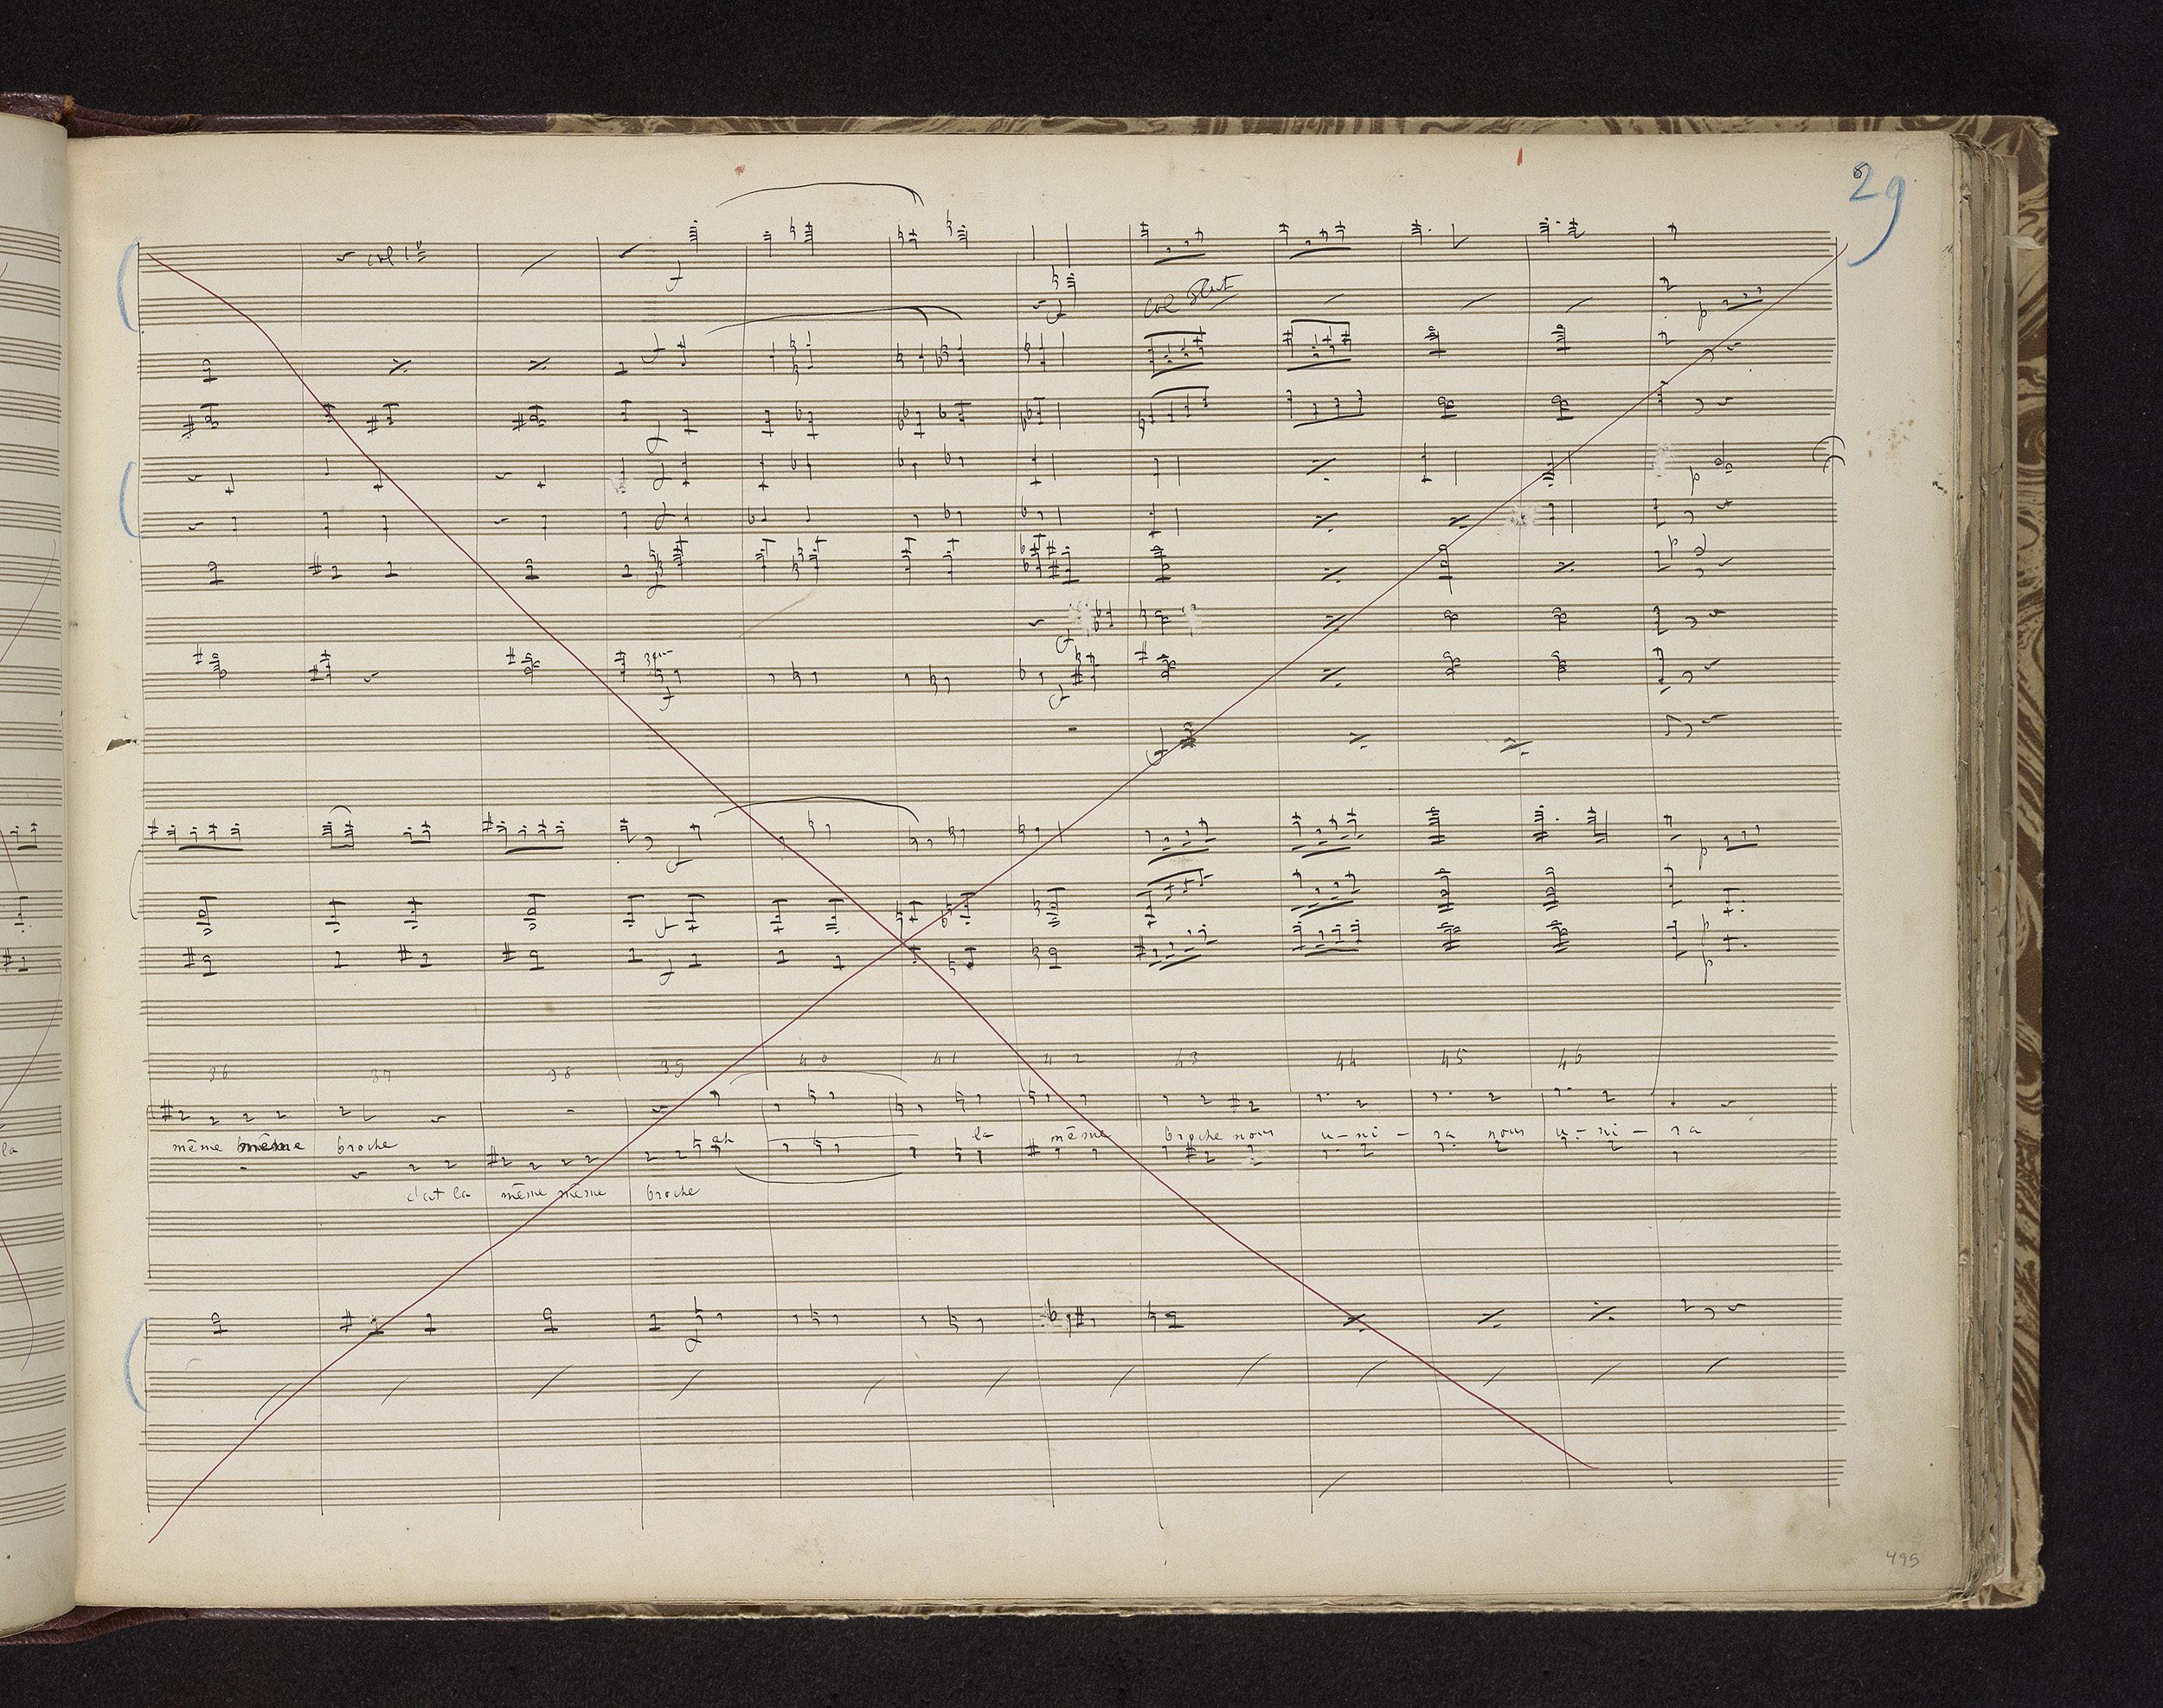 29
col 1º
col Flut
p
p
p
p
p
p
p
36 37 38 39 40 41 42 43 44 45 46
même même broche ah la même broche nous u-ni-ra nous u-ni-ra
la
c'est la même même broche
495